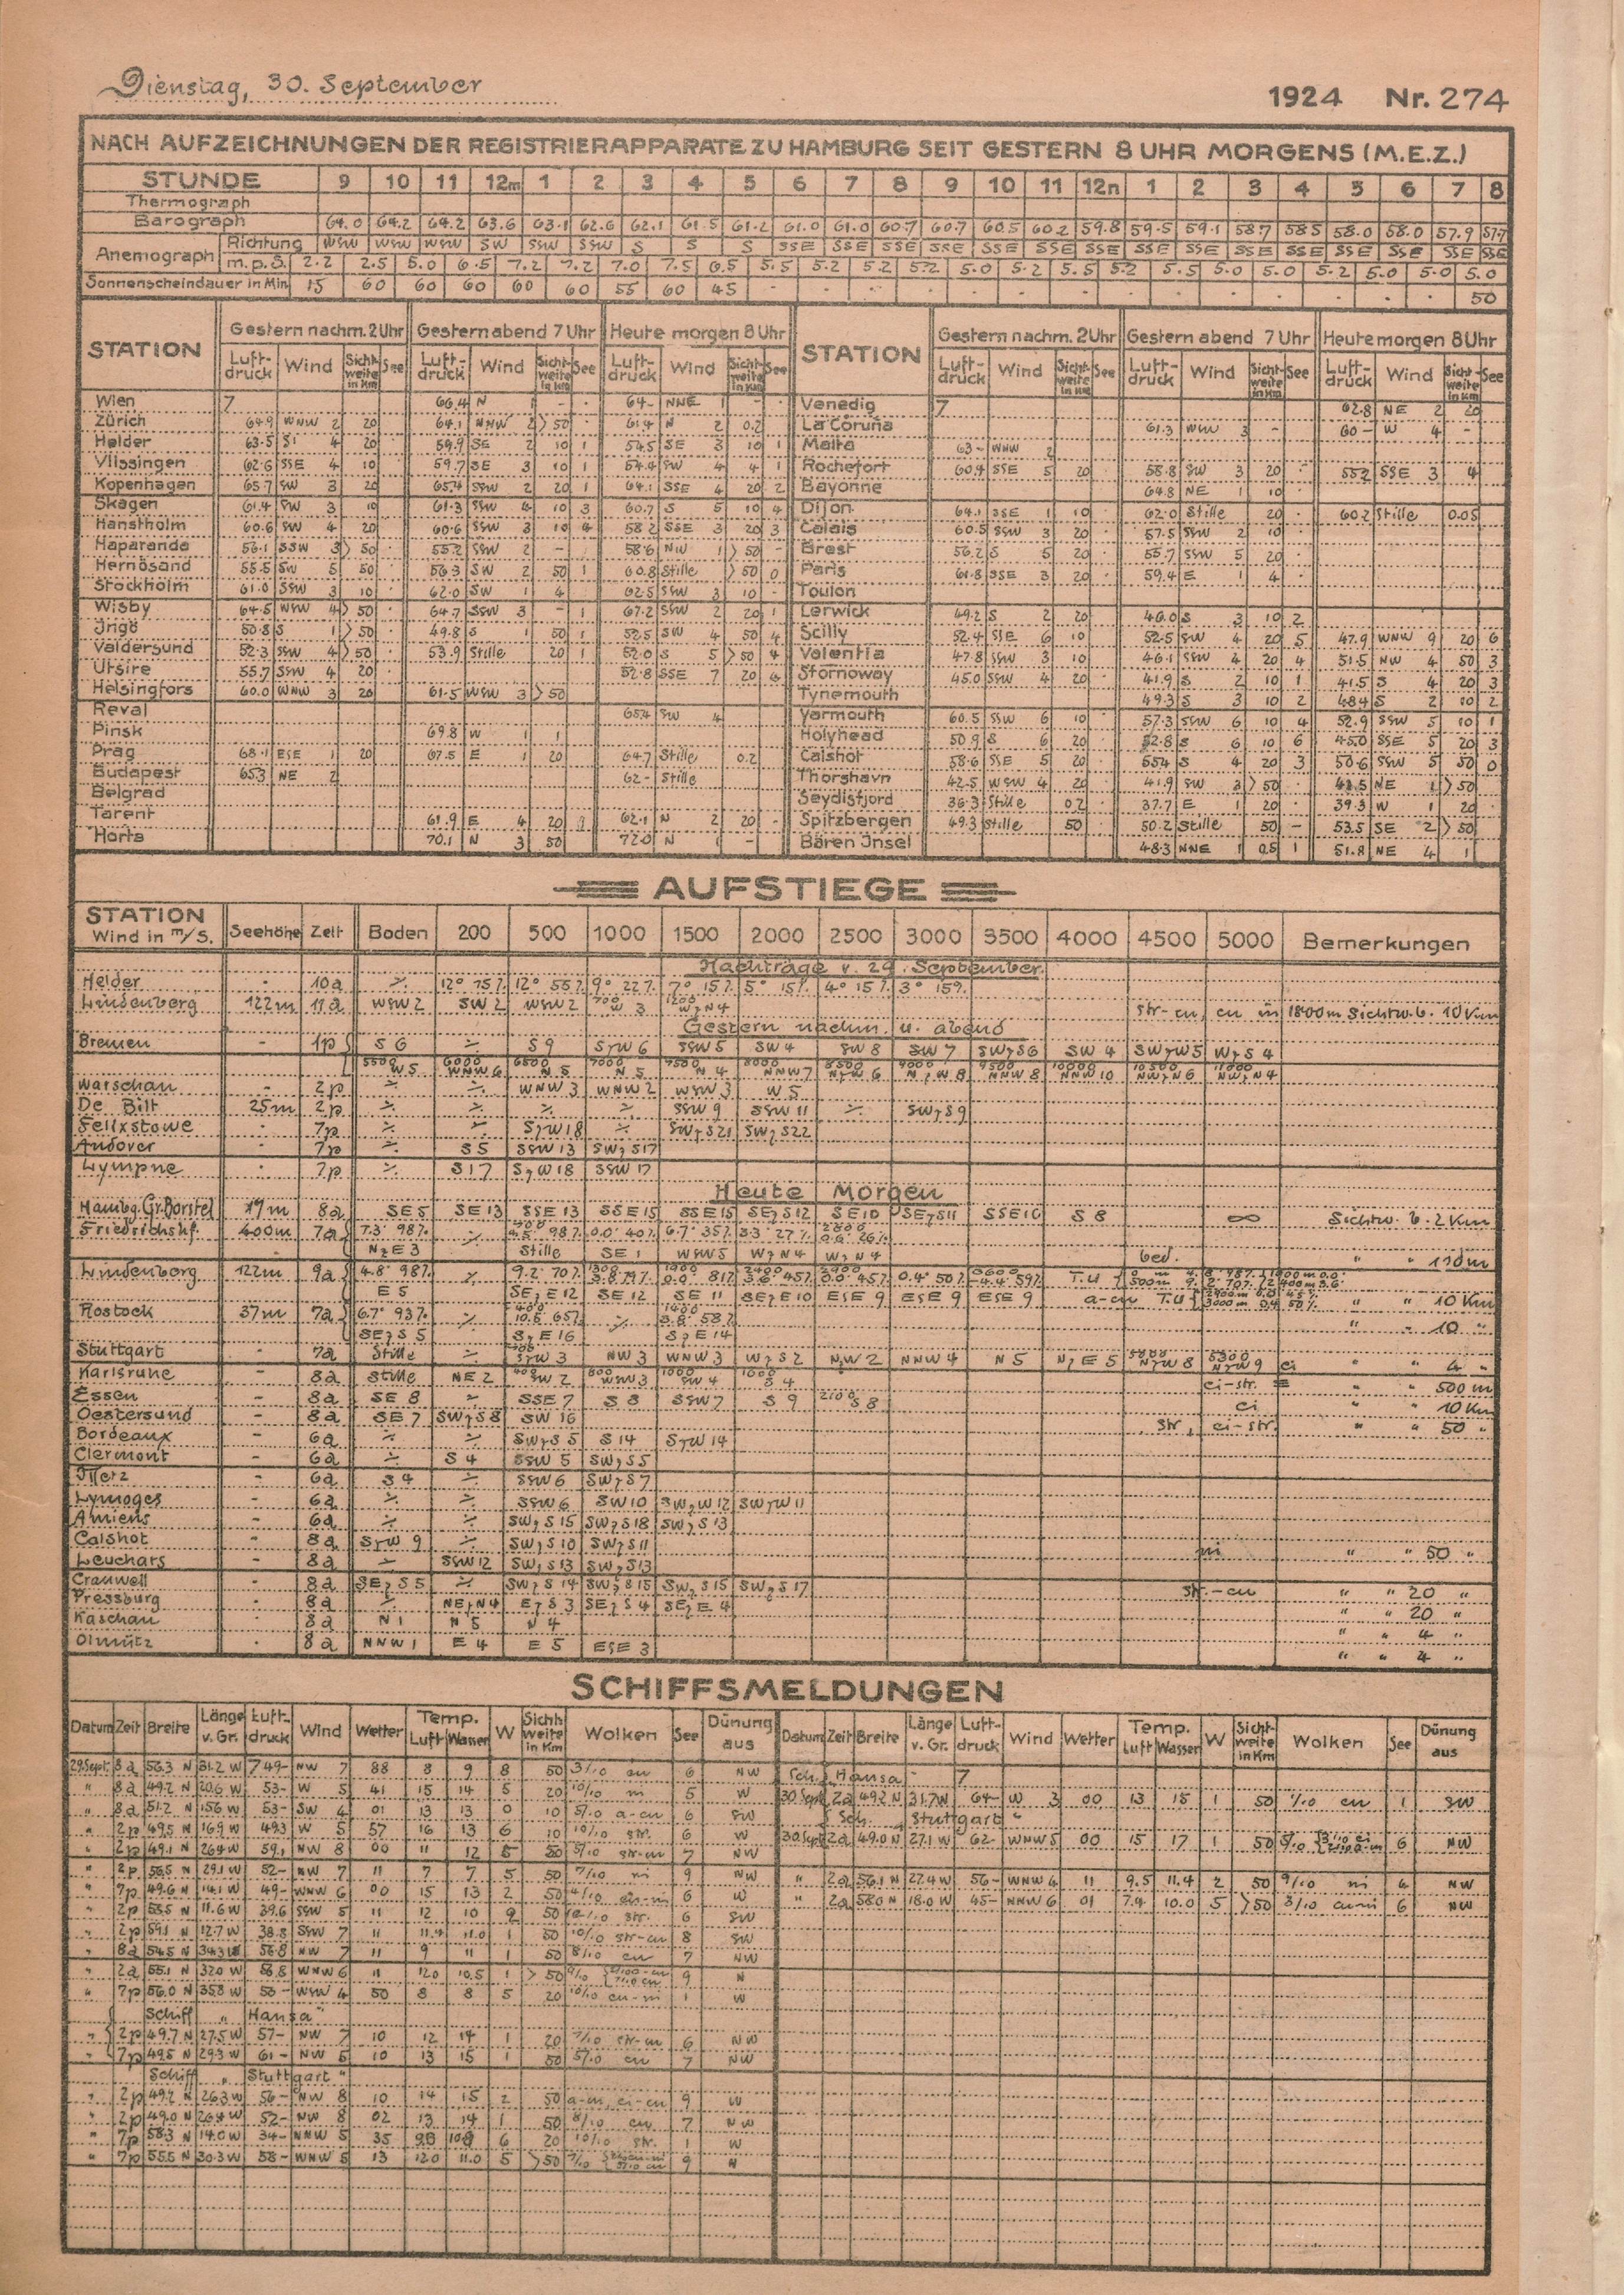 Dienstag, 30. September
1924 Nr. 274
NACH AUFZEICHNUNGEN DER REGISTRIERAPPARATE ZU HAMBURG SEIT GESTERN 8 UHR MORGENS (M.E.Z.)
STUNDE 9 10 11 12m 1 2 3 4 5 6 7 8 9 10 11 12n 1 2 3 4 5 6 7 8
Thermograph
Barograph 64.0 64.2 64.2 63.6 63.1 62.6 62.1 61.5 61.2 61.0 61.0 60.7 60.7 60.5 60.2 59.8 59.5 59.1 58.7 58.5 58.0 58.0 57.9 57.7
Anemograph Richtung WSW WSW WSW SW SSW SSW S S S SSE SSE SSE SSE SSE SSE SSE SSE SSE SSE SSE SSE SSE SSE SSE
m.p.S. 2.2 2.5 5.0 6.5 7.2 7.2 7.0 7.5 6.5 5.5 5.2 5.2 5.2 5.0 5.2 5.5 5.2 5.5 5.0 5.0 5.2 5.0 5.0 5.0
Sonnenscheindauer in Min. 15 60 60 60 60 60 55 60 45 - - - - - - - - - - - - - - 50
STATION Gestern nachm. 2 Uhr Gestern abend 7 Uhr Heute morgen 8 Uhr STATION Gestern nachm. 2 Uhr Gestern abend 7 Uhr Heute morgen 8 Uhr
Luftdruck Wind Sichtweite in Km See Luftdruck Wind Sichtweite in Km See Luftdruck Wind Sichtweite in Km See
Wien 7 66.4 N 1 - - 64- NNE 1 - - Venedig 7 62.8 NE 2 20
Zürich 64.9 WNW 2 20 64.1 NNW 2 >50 61.4 N 2 0.2 La Coruña 61.3 WNW 3 - 60- W 4 -
Helder 63.5 S 4 20 59.9 SE 2 10 1 54.5 SE 3 10 1 Malta 63- WNW 2
Vlissingen 62.6 SSE 4 10 59.7 SE 3 10 1 54.4 SW 4 4 1 Rochefort 60.4 SSE 5 20 58.8 SW 3 20 55.2 SSE 3 4
Kopenhagen 65.7 SW 3 20 65.4 SSW 2 20 1 64.1 SSE 4 20 2 Bayonne 64.8 NE 1 10
Skagen 61.4 SW 3 10 61.3 SSW 4 10 3 60.7 S 5 10 4 Dijon 64.1 SSE 1 10 62.0 Stille 20 60.2 Stille 0.05
Hanstholm 60.6 SW 4 20 60.6 SSW 3 10 4 58.2 SSE 3 20 3 Calais 60.5 SSW 3 20 57.5 SSW 2 10
Haparanda 56.1 SSW 3 >50 55.2 SSW 2 - 58.6 NW 1 >50 - Brest 56.2 S 5 20 55.7 SSW 5 20
Hernösand 55.5 SW 5 50 56.3 SW 2 50 1 60.8 Stille >50 0 Paris 61.8 SSE 3 20 59.4 E 1 4
Stockholm 61.0 SSW 3 10 62.0 SW 1 4 62.5 SSW 3 10 - Toulon
Wisby 64.5 WSW 4 >50 64.7 SSW 3 - 1 67.2 SSW 2 20 1 Lerwick 49.2 S 2 20 46.0 S 3 10 2
Ingö 50.8 S 1 >50 49.8 S 1 50 1 52.5 SW 4 50 4 Scilly 52.4 SSE 6 10 52.5 SW 4 20 5 47.9 WNW 9 20 6
Valdersund 52.3 SSW 4 >50 53.9 Stille 20 1 52.0 S 5 >50 4 Valentia 47.8 SSW 3 10 46.1 SSW 4 20 4 51.5 NW 4 50 3
Utsire 55.7 SSW 4 20 52.8 SSE 7 20 4 Stornoway 45.0 SSW 4 20 41.9 S 2 10 1 41.5 S 4 20 3
Helsingfors 60.0 WNW 3 20 61.5 WSW 3 >50 Tynemouth 49.3 S 3 10 2 48.4 S 2 10 2
Reval 65.4 SW 4 Yarmouth 60.5 SSW 6 10 57.3 SSW 6 10 4 52.9 SSW 5 10 1
Pinsk 69.8 W 1 1 Holyhead 50.9 S 6 20 52.8 S 6 10 6 45.0 SSE 5 20 3
Prag 68.1 ESE 1 20 67.5 E 1 20 64.7 Stille 0.2 Calshot 58.6 SSE 5 20 55.4 S 4 20 3 50.6 SSW 5 50 0
Budapest 65.3 NE 2 62- Stille Thorshavn 42.5 WSW 4 20 41.9 SW 3 >50 NE 1 >50
Belgrad Seydisfjord 36.3 Stille 0.2 37.7 E 1 20 39.3 W 1 20
Tarent 61.9 E 4 20 62.1 N 2 20 - Spitzbergen 49.3 Stille 50 50.2 Stille 50 - 53.5 SE 2 >50
Horta 70.1 N 3 50 72.0 N 1 - Bären Insel 48.3 NNE 1 0.5 1 51.8 NE 4 1
AUFSTIEGE
STATION Wind in m/S. Seehöhe Zeit Boden 200 500 1000 1500 2000 2500 3000 3500 4000 4500 5000 Bemerkungen
Nachträge v. 29. September
Helder - 10a ./. 12° 75% 12° 55% 9° 22% 7° 15% 5° 15% 4° 15% 3° 15%
Lindenberg 122m 11a WSW 2 SW 2 WSW 2 700 W 3 1200 WzN 4 str-cu, cu in 1800m Sichtw. b. 10 Km
Gestern nachm. u. abend
Bremen - 1p S 6 ./. S 9 SzW 6 SSW 5 SW 4 SW 8 SW 7 SWzS 6 SW 4 SWzW 5 WzS 4
5500 W 5 6000 WNW 6 6500 N 5 7000 N 5 7500 N 4 8000 NNW 7 8500 NzW 6 9000 NzW 8 9500 NNW 8 10000 NNW 10 10500 NWzN 6 11000 NWzN 4
Warschau - 2p ./. ./. WNW 3 WNW 2 WSW 3 W 5
De Bilt 25m 2p ./. ./. ./. ./. SSW 9 SSW 11 ./. SWzS 9
Felixstowe - 7p ./. ./. SzW 18 ./. SWzS 21 SWzS 22
Andover - 7p ./. S 5 SSW 13 SWzS 17
Lympne - 7p ./. S 17 SzW 18 SSW 17
Heute Morgen
Hambg. Gr. Borstel 17m 8a SE 5 SE 13 SSE 13 SSE 15 SSE 15 SEzS 12 SE 10 SEzS 11 SSE 10 S 8 ∞ Sichtw. b. 2 Km
Friedrichshf. 400m 7a 7.3° 98% ./. 500 98% 0.0° 40% 6.7° 35% 3.3° 27% 2800 0.6° 26%
NzE 3 Stille SE 1 WSW 5 WzN 4 WzN 4 bed. " " 110m
Lindenberg 122m 9a 4.8° 98% ./. 9.2° 70% 1300 1900 0.0° 81% 2400 3.6° 45% 2900 0.0° 45% 0.4° 50% 3600 -4.4° 59% T.U
E 5 SEzE 12 SE 12 SE 11 SEzE 10 ESE 9 ESE 9 ESE 9 a-cu T.U " " 10 Km
Rostock 37m 7a 6.7° 93% ./. 400 10.6° 65% ./. 1400 8.8° 58%
SEzS 5 SzE 16 SzE 14 " " 10 "
Stuttgart - 7a Stille ./. SzW 3 NW 3 WNW 3 WzS 2 NzW 2 NNW 4 N 5 NzE 5 NzW 8 5300 NzW 9 ci " " 4 "
Karlsruhe - 8a Stille NE 2 400 SW 2 800 WSW 3 1000 SW 4 S 4 ci-str. ≡ " " 500 m
Essen - 8a SE 8 ./. SSE 7 S 8 SSW 7 S 9 2100 S 8 ci " " 10 Km
Oestersund - 8a SE 7 SWzS 8 SW 16 str, ci-str. " " 50 "
Bordeaux - 6a ./. ./. SWzS 5 S 14 SzW 14
Clermont - 6a ./. S 4 SSW 5 SWzS 5
Metz - 6a S 4 ./. SSW 6 SWzS 7
Lymoges - 6a ./. ./. SSW 6 SW 10 SWzW 12 SWzW 11
Amiens - 6a ./. ./. SWzS 15 SWzS 18 SWzS 13
Calshot - 8a SzW 9 SWzS 10 SWzS 11
Leuchars - 8a ./. SSW 12 SWzS 13 SWzS 13 ni " " 50 "
Cranwell - 8a SEzS 5 ./. SWzS 14 SWzS 15 SWzS 15 SWzS 17
Pressburg - 8a ./. NEzN 4 EzS 3 SEzS 4 SEzE 4 str.-cu " " 20 "
Kaschau - 8a N 1 N 5 N 4 " " 20 "
Olmütz - 8a NNW 1 E 4 E 5 ESE 3 " " 4 "
" " 4 "
SCHIFFSMELDUNGEN
Datum Zeit Breite Länge v. Gr. Luftdruck Wind Wetter Temp. Luft Wasser W Sichtweite in Km Wolken See Dünung aus Datum Zeit Breite Länge v. Gr. Luftdruck Wind Wetter Temp. Luft Wasser W Sichtweite in Km Wolken See Dünung aus
29.Sept. 8a 56.3 N 31.2 W 749- NW 7 88 8 9 8 50 3/10 cu 6 NW Sch. Hansa 7
" 8a 49.2 N 20.6 W 53- W 5 41 15 14 5 20 10/10 ni 5 W 30 Sept. 2a 49.2 N 31.7 W 64- W 3 00 13 15 1 50 1/10 cu 1 SW
" 8a 51.2 N 15.6 W 53- SW 4 01 13 13 0 10 5/10 a-cu 6 SW Sch. Stuttgart "
" 2p 49.5 N 16.9 W 49.3 W 5 57 16 13 6 10 10/10 str. 6 W 30 Sept 2a 49.0 N 27.1 W 62- WNW 5 00 15 17 1 50 5/10 6 NW
" 2p 49.1 N 26.4 W 59.1 NW 8 00 11 12 5 50 5/10 str-cu 7 NW
" 2p 56.5 N 29.1 W 52- NW 7 11 7 7 5 50 7/10 ni 9 NW " 2a 56.1 N 27.4 W 56- WNW 4 11 9.5 11.4 2 50 9/10 ni 4 NW
" 7p 49.6 N 14.1 W 49- WNW 6 00 15 13 2 50 4/10 cu-ni 6 W " 2a 58.0 N 18.0 W 45- NNW 6 01 7.4 10.0 5 >50 3/10 cu-ni 6 NW
" 2p 53.5 N 11.6 W 39.6 SSW 5 11 12 10 9 50 10/10 str. 6 SW
" 2p 59.1 N 12.7 W 38.8 SSW 7 11 11.4 11.0 1 50 10/10 str-cu 8 SW
" 8a 54.5 N 34.3 W 56.8 NW 7 11 9 11 1 50 8/10 cu 7 NW
" 2a 55.1 N 32.0 W 58.8 WNW 6 11 12.0 10.5 1 >50 9/10 9 N
" 7p 56.0 N 35.8 W 53- WSW 4 50 8 8 5 20 10/10 cu-ni 1 W
Schiff „Hansa"
" 2p 49.7 N 27.5 W 57- NW 7 10 12 14 1 20 7/10 str-cu 6 NW
" 7p 49.5 N 29.3 W 61- NW 5 10 13 15 1 50 5/10 cu 7 NW
Schiff „Stuttgart"
" 2p 49.2 N 26.3 W 56- NW 8 10 14 15 2 50 a-cu, ci-cu 9 W
" 2p 49.0 N 26.4 W 52- NW 8 02 13 14 1 50 8/10 cu 7 NW
" 7p 58.3 N 14.0 W 34- NNW 5 35 6 20 10/10 str. 1 W
" 7p 55.5 N 30.3 W 58- WNW 5 13 12.0 11.0 5 >50 7/10 9 N